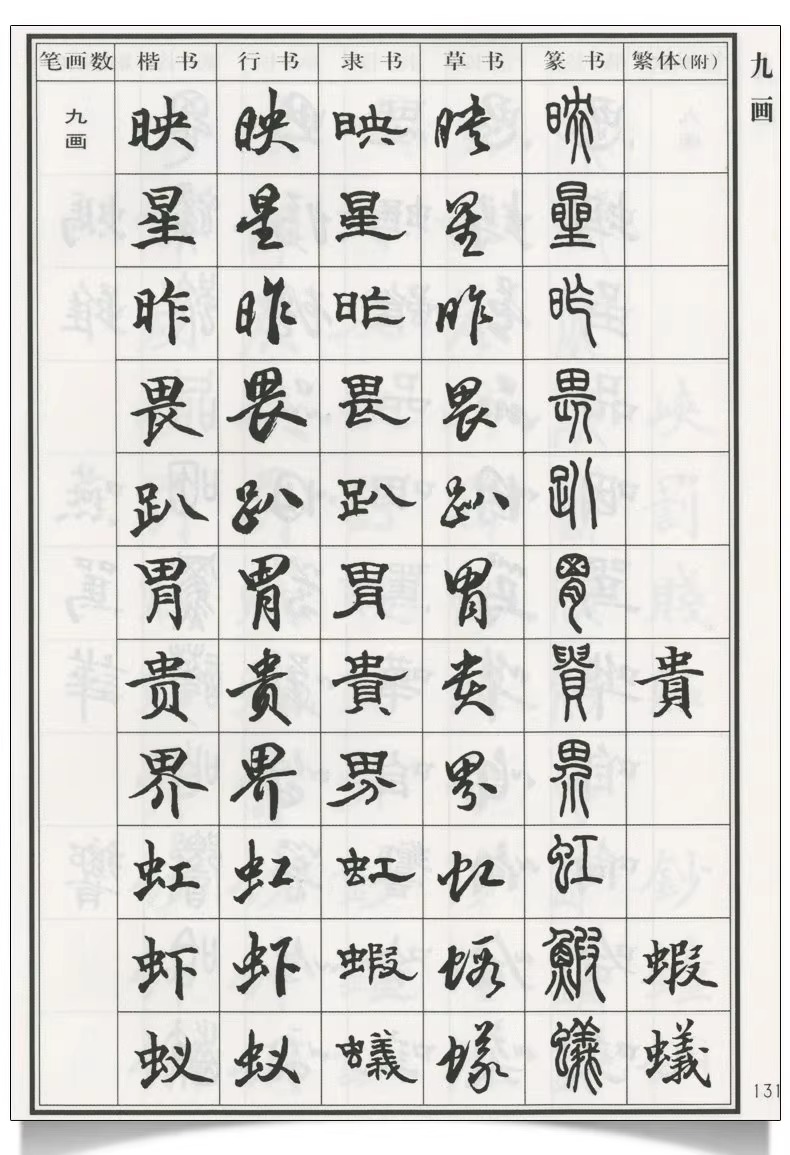 笔画数 楷书 行书 隶书 草书 篆书 繁体(附)
九画 映 映 映 映 映
星 星 星 星 星
昨 昨 昨 昨 昨
畏 畏 畏 畏 畏
趴 趴 趴 趴 趴
胃 胃 胃 胃 胃
贵 贵 貴 贵 貴 貴
界 界 界 界 界
虹 虹 虹 虹 虹
虾 虾 蝦 蝦 鰕 蝦
蚁 蚁 蟻 蟻 蟻 蟻
九画
131